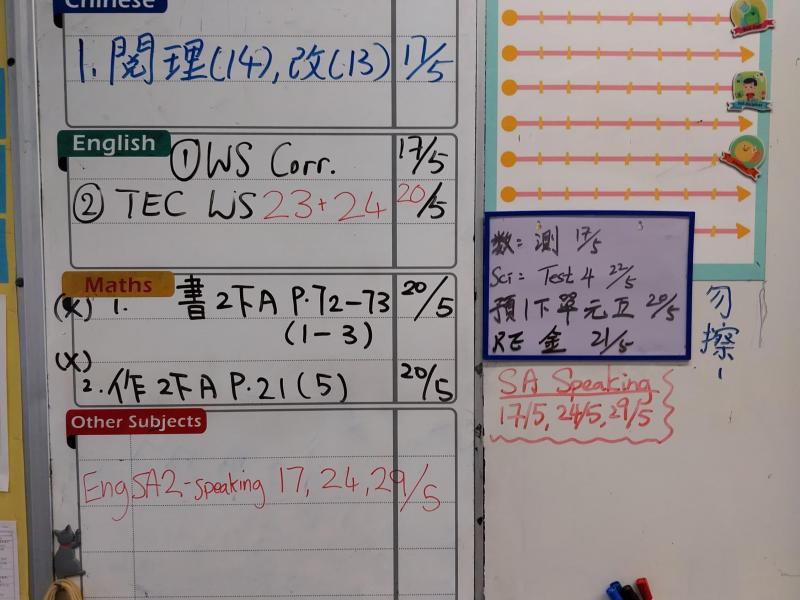 Chinese
1. 閱理(14), 改(13) 17/5
English
① WS Corr. 17/5
② TEC WS 23+24 20/5
Maths
(X) 1. 書 2下A P.72-73 20/5
(1-3)
(X)
2. 作 2下A P.21(5) 20/5
Other Subjects
Eng SA2-speaking 17, 24, 29/5
数: 測 17/5
Sci: Test 4 22/5
預1下單元五 20/5
RE 金 21/5
勿擦!
SA Speaking
17/5, 24/5, 29/5